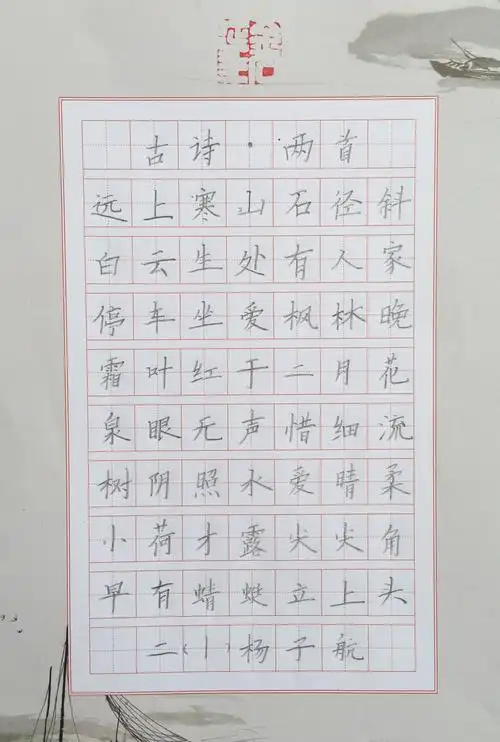 古诗·两首
远上寒山石径斜
白云生处有人家
停车坐爱枫林晚
霜叶红于二月花
泉眼无声惜细流
树阴照水爱晴柔
小荷才露尖尖角
早有蜻蜓立上头
二(1)杨子航